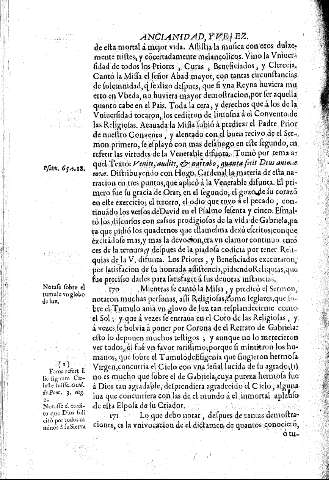 ANCIANIDAD, Y VEJEZ.
de esta mortal á mejor vida. Assistia la musica con ecos dulze-
mente tristes, y cōcertadamente melancolicos. Vino la Vniversi-
dad de todos los Priores, Curas, Beneficiados, y Clerecia.
Cantó la Missa el señor Abad mayor, con tantas circunstancias
de solemnidad, q̃ se dixo despues, que si vna Reyna huviera mu-
erto en Vbeda, no huviera mayor demonstracion, por ser aquella
quanto cabe en el Pais. Toda la cera, y derechos que á los de la
Vniversidad tocaron, los cedierõ de limosna á el Convento de
las Religiosas. Acauada la Missa subió a predicar el Padre Prior
de nuestro Convento, y alentado con el buen recivo de el Ser-
mon primero, se explayó con mas desahogo en este segundo, en
referir las virtudes de la Venerable difunta. Tomó por tema
Psalm. 65. v. 18.
quel Texto: Venite, audite, & narrabo, quanta fecit Deus animæ
meæ. Distribuyendo con Hugo Cardenal la materia de esta na-
rracion en tres puntos, que aplicó á la Venerable difunta. El pri-
mero fue su gracia de Orar, en el segundo, el
en este exercicio; el tercero, el odio que tovo á el pecado,
tinuado los versos de David en el Psalmo sesenta y cinco. Esmal-
tó los discursos con casos prodigiosos de la vida de Gabriela, pa-
ra que
y mas la devocion,
ros de la ternura, y despues de la piadosa codicia por tener Reli-
quias de la V. difunta. Los Priores, y Beneficiados executaron,
por satisfacion de su honrada assistencia, pidiendo Reliquias, que
fue preciso darles para satisfacer á sus devotas instancias.
Notase sobre el
tumulo vn globo
de luz.
170 Mientras se cantó la Missa, y predicó el Sermon,
notaron muchas personas, assi Religiosas, como seglares, que so-
bre el Tumulo auia vn globo de luz tan resplandeciente como
el Sol; y que á vezes se entraua en el Coro de las Religiosas, y
á vezes se bolvia á poner por Corona de el Retrato de Gabriela:
esto lo deponen muchos testigos; y aunque no lo merecieron
ver todos, si fue vn favor
manos, que sobre el Tumulo de
(1)
Virgen, concurra el Cielo con vna señal lucida de su agrado, (1)
no es mucho que sobre el de Gabriela, cuya pureza hermosa fue
á Dios tan agradable, desprendiera agradecido el Cielo, alguna
luz que concurriera con las de el mundo á el inmortal aplauso
de esta Esposa de su Criador.
171 Lo que debo notar, despues de tantas demostra-
ciones, es la vniuocacion de el dictamen de quantos conoció,
ó tu-